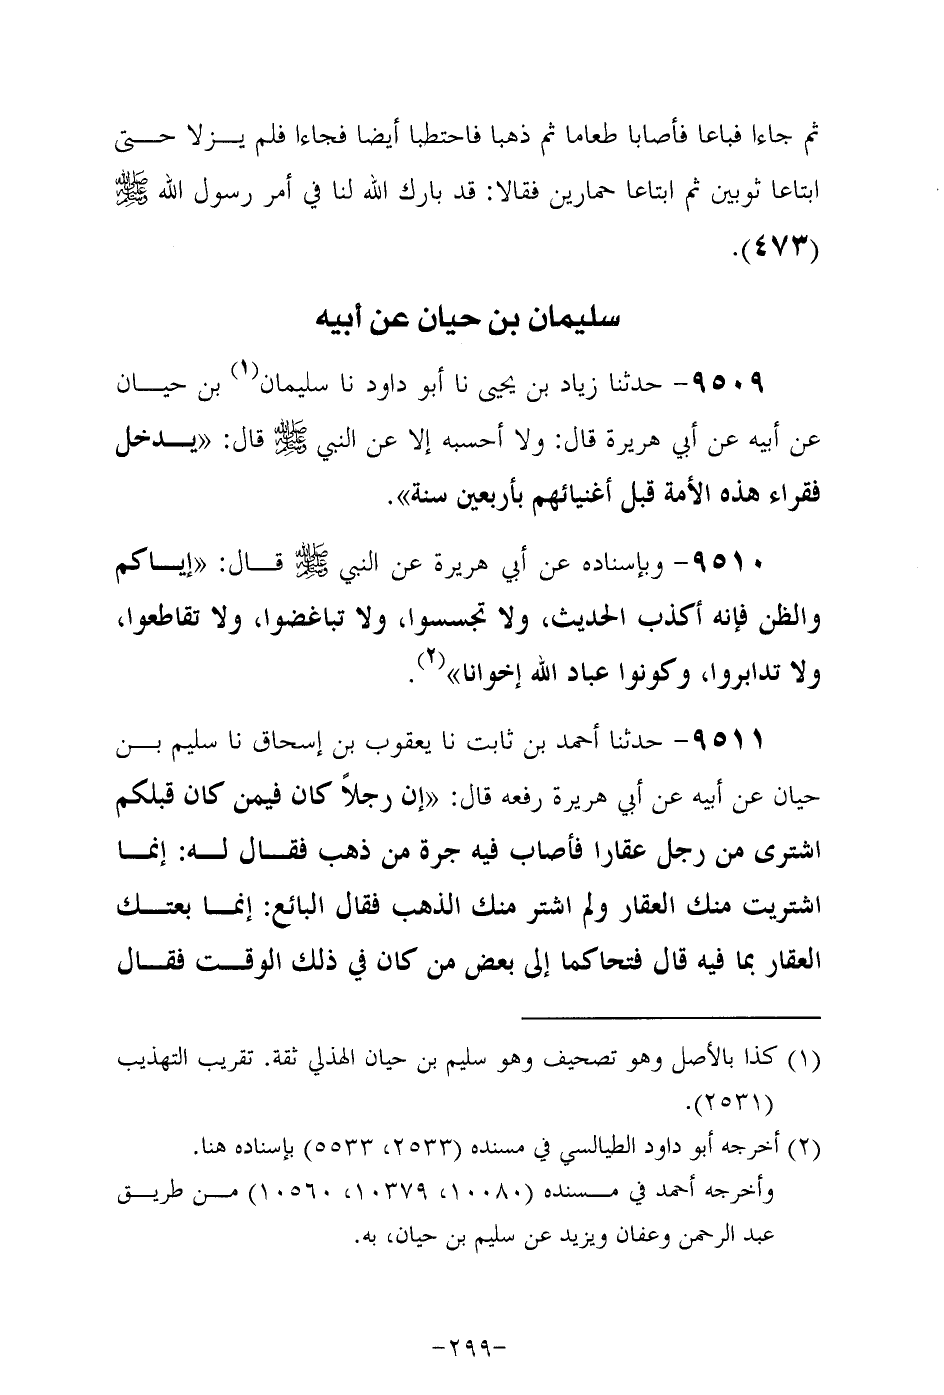 ثم جاءا فباعا فأصابا طعاما ثم ذهبا فاحتطبا أيضا فجاءا فلم يــزلا حــتى
ابتاعا ثوبين ثم ابتاعا حمارين فقالا: قد بارك الله لنا في أمر رسول الله ﷺ
(٤٧٣).
سليمان بن حيان عن أبيه
٩٥٠٩- حدثنا زياد بن يحيى نا أبو داود نا سليمان(١) بن حيــان
عن أبيه عن أبي هريرة قال: ولا أحسبه إلا عن النبي ﷺ قال: «يــدخل
فقراء هذه الأمة قبل أغنيائهم بأربعين سنة».
٩٥١٠- وبإسناده عن أبي هريرة عن النبي ﷺ قــال: «إيــاكم
والظن فإنه أكذب الحديث، ولا تجسسوا، ولا تباغضوا، ولا تقاطعوا،
ولا تدابروا، وكونوا عباد الله إخوانا»(٢).
٩٥١١- حدثنا أحمد بن ثابت نا يعقوب بن إسحاق نا سليم بــن
حيان عن أبيه عن أبي هريرة رفعه قال: «إن رجلاً كان فيمن كان قبلكم
اشترى من رجل عقارا فأصاب فيه جرة من ذهب فقــال لــه: إنمــا
اشتريت منك العقار ولم اشتر منك الذهب فقال البائع: إنمــا بعتــك
العقار بما فيه قال فتحاكما إلى بعض من كان في ذلك الوقــت فقــال
(١) كذا بالأصل وهو تصحيف وهو سليم بن حيان الهذلي ثقة. تقريب التهذيب
(٢٥٣١).
(٢) أخرجه أبو داود الطيالسي في مسنده (٢٥٣٣، ٥٥٣٣) بإسناده هنا.
وأخرجه أحمد في مــسنده (١٠٠٨٠، ١٠٣٧٩، ١٠٥٦٠) مــن طريــق
عبد الرحمن وعفان ويزيد عن سليم بن حيان، به.
-٢٩٩-